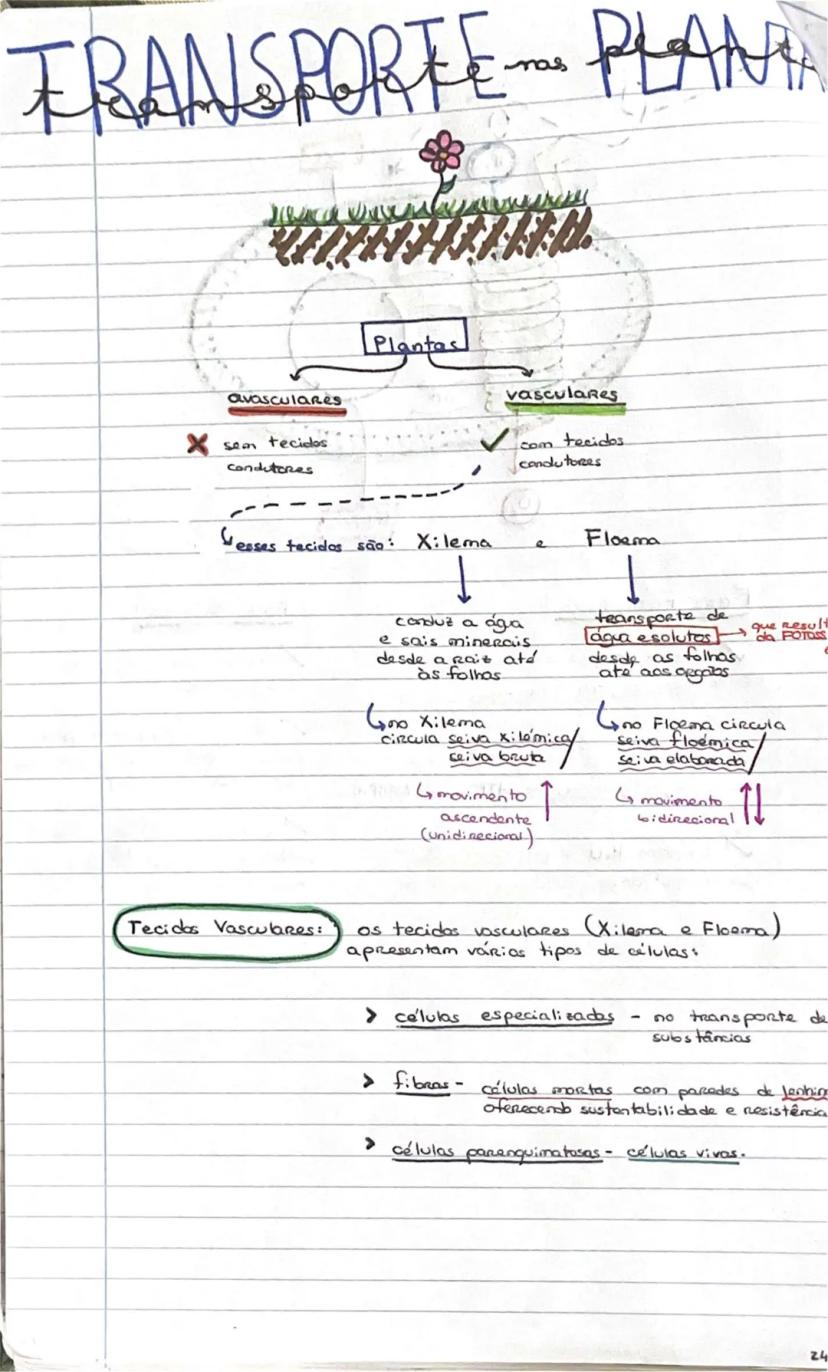 TRANSPORTE PLANTA
transporte nas planta
Plantas
avasculares
vasculares
sem tecidos
condutores
com tecidos
condutores
esses tecidos são: Xilema e Floema
conduz a ága
e sais minerais
desde a raiz até
às folhas
transporte de
água e solutos
desde as folhas
até aos orgãos
que result
da FOTOSS
no Xilema
circula seiva xilémica/
seiva bruta
no Floema circula
seiva floémica/
seiva elaborada
movimento
ascendente
(unidirecional)
movimento
bidirecional
Tecidos Vasculares: os tecidos vasculares (Xilema e Floema)
apresentam vários tipos de células:
> células especializadas - no transporte de
substâncias
> fibras - células mortas com paredes de lenhin
oferecendo sustentabilidade e resistência
> células parenquimatosas - células vivas.
24